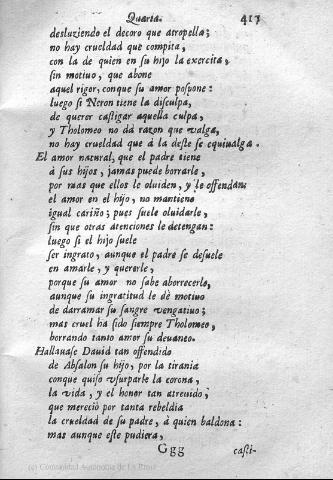 Quarta. 417
desluziendo el decoro que atropella;
no hay crueldad que compita,
con la de quien en su hijo la exercita,
sin motiuo, que abone
aquel rigor, conque su amor pospone:
luego si Neron tiene la disculpa,
de querer castigar aquella culpa,
y Tholomeo no dà razon que valga,
no hay crueldad que à la deste se equiualga.
El amor natural, que el padre tiene
à sus hijos, jamas puede borrarle,
por mas que ellos le oluiden, y le offendan:
el amor en el hijo, no mantiene
igual cariño; pues suele oluidarle,
sin que otras atenciones le detengan:
luego si el hijo suele
ser ingrato, aunque el padre se desuele
en amarle, y quererle,
porque su amor no sabe aborrecerle,
aunque su ingratitud le dè motiuo
de darramar su sangre vengatiuo;
mas cruel ha sido siempre Tholomeo,
borrando tanto amor su deuaneo.
Hallauase Dauid tan offendido
de Absalon su hijo, por la tirania
conque quiso vsurparle la corona,
la vida, y el honor tan atreuido;
que mereciò por tanta rebeldia
la crueldad de su padre, à quien baldona:
mas aunque este pudiera,
Ggg casti-
(c) Comunidad Autónoma de La Rioja